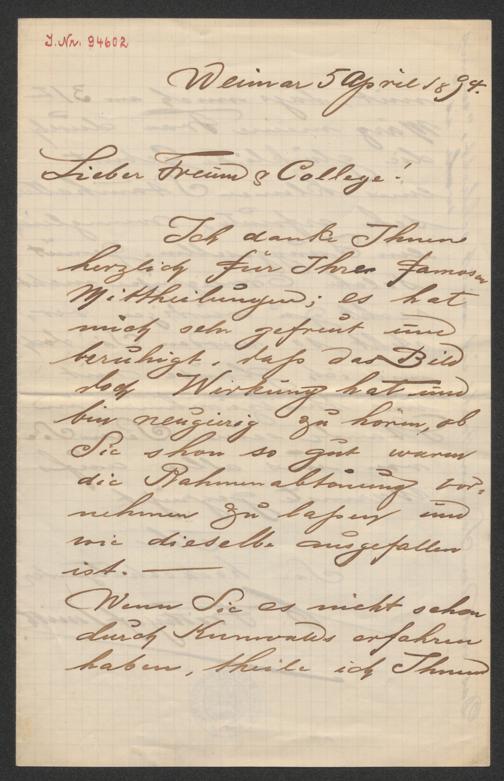 J. Nr. 94602
Weimar 5 April 1894.
Lieber Freund & College!
Ich danke Ihnen
herzlich für Ihre famosen
Mittheilungen; es hat
mich sehr gefreut und
beruhigt, daß das Bild
doch Wirkung hat und
bin neugierig zu hören, ob
Sie schon so gut waren
die Rahmenabtönung vor=
nehmen zu laßen und
wie dieselbe ausgefallen
ist. —
Wenn Sie es nicht schon
durch Kunwalds erfahren
haben, theile ich Ihnen